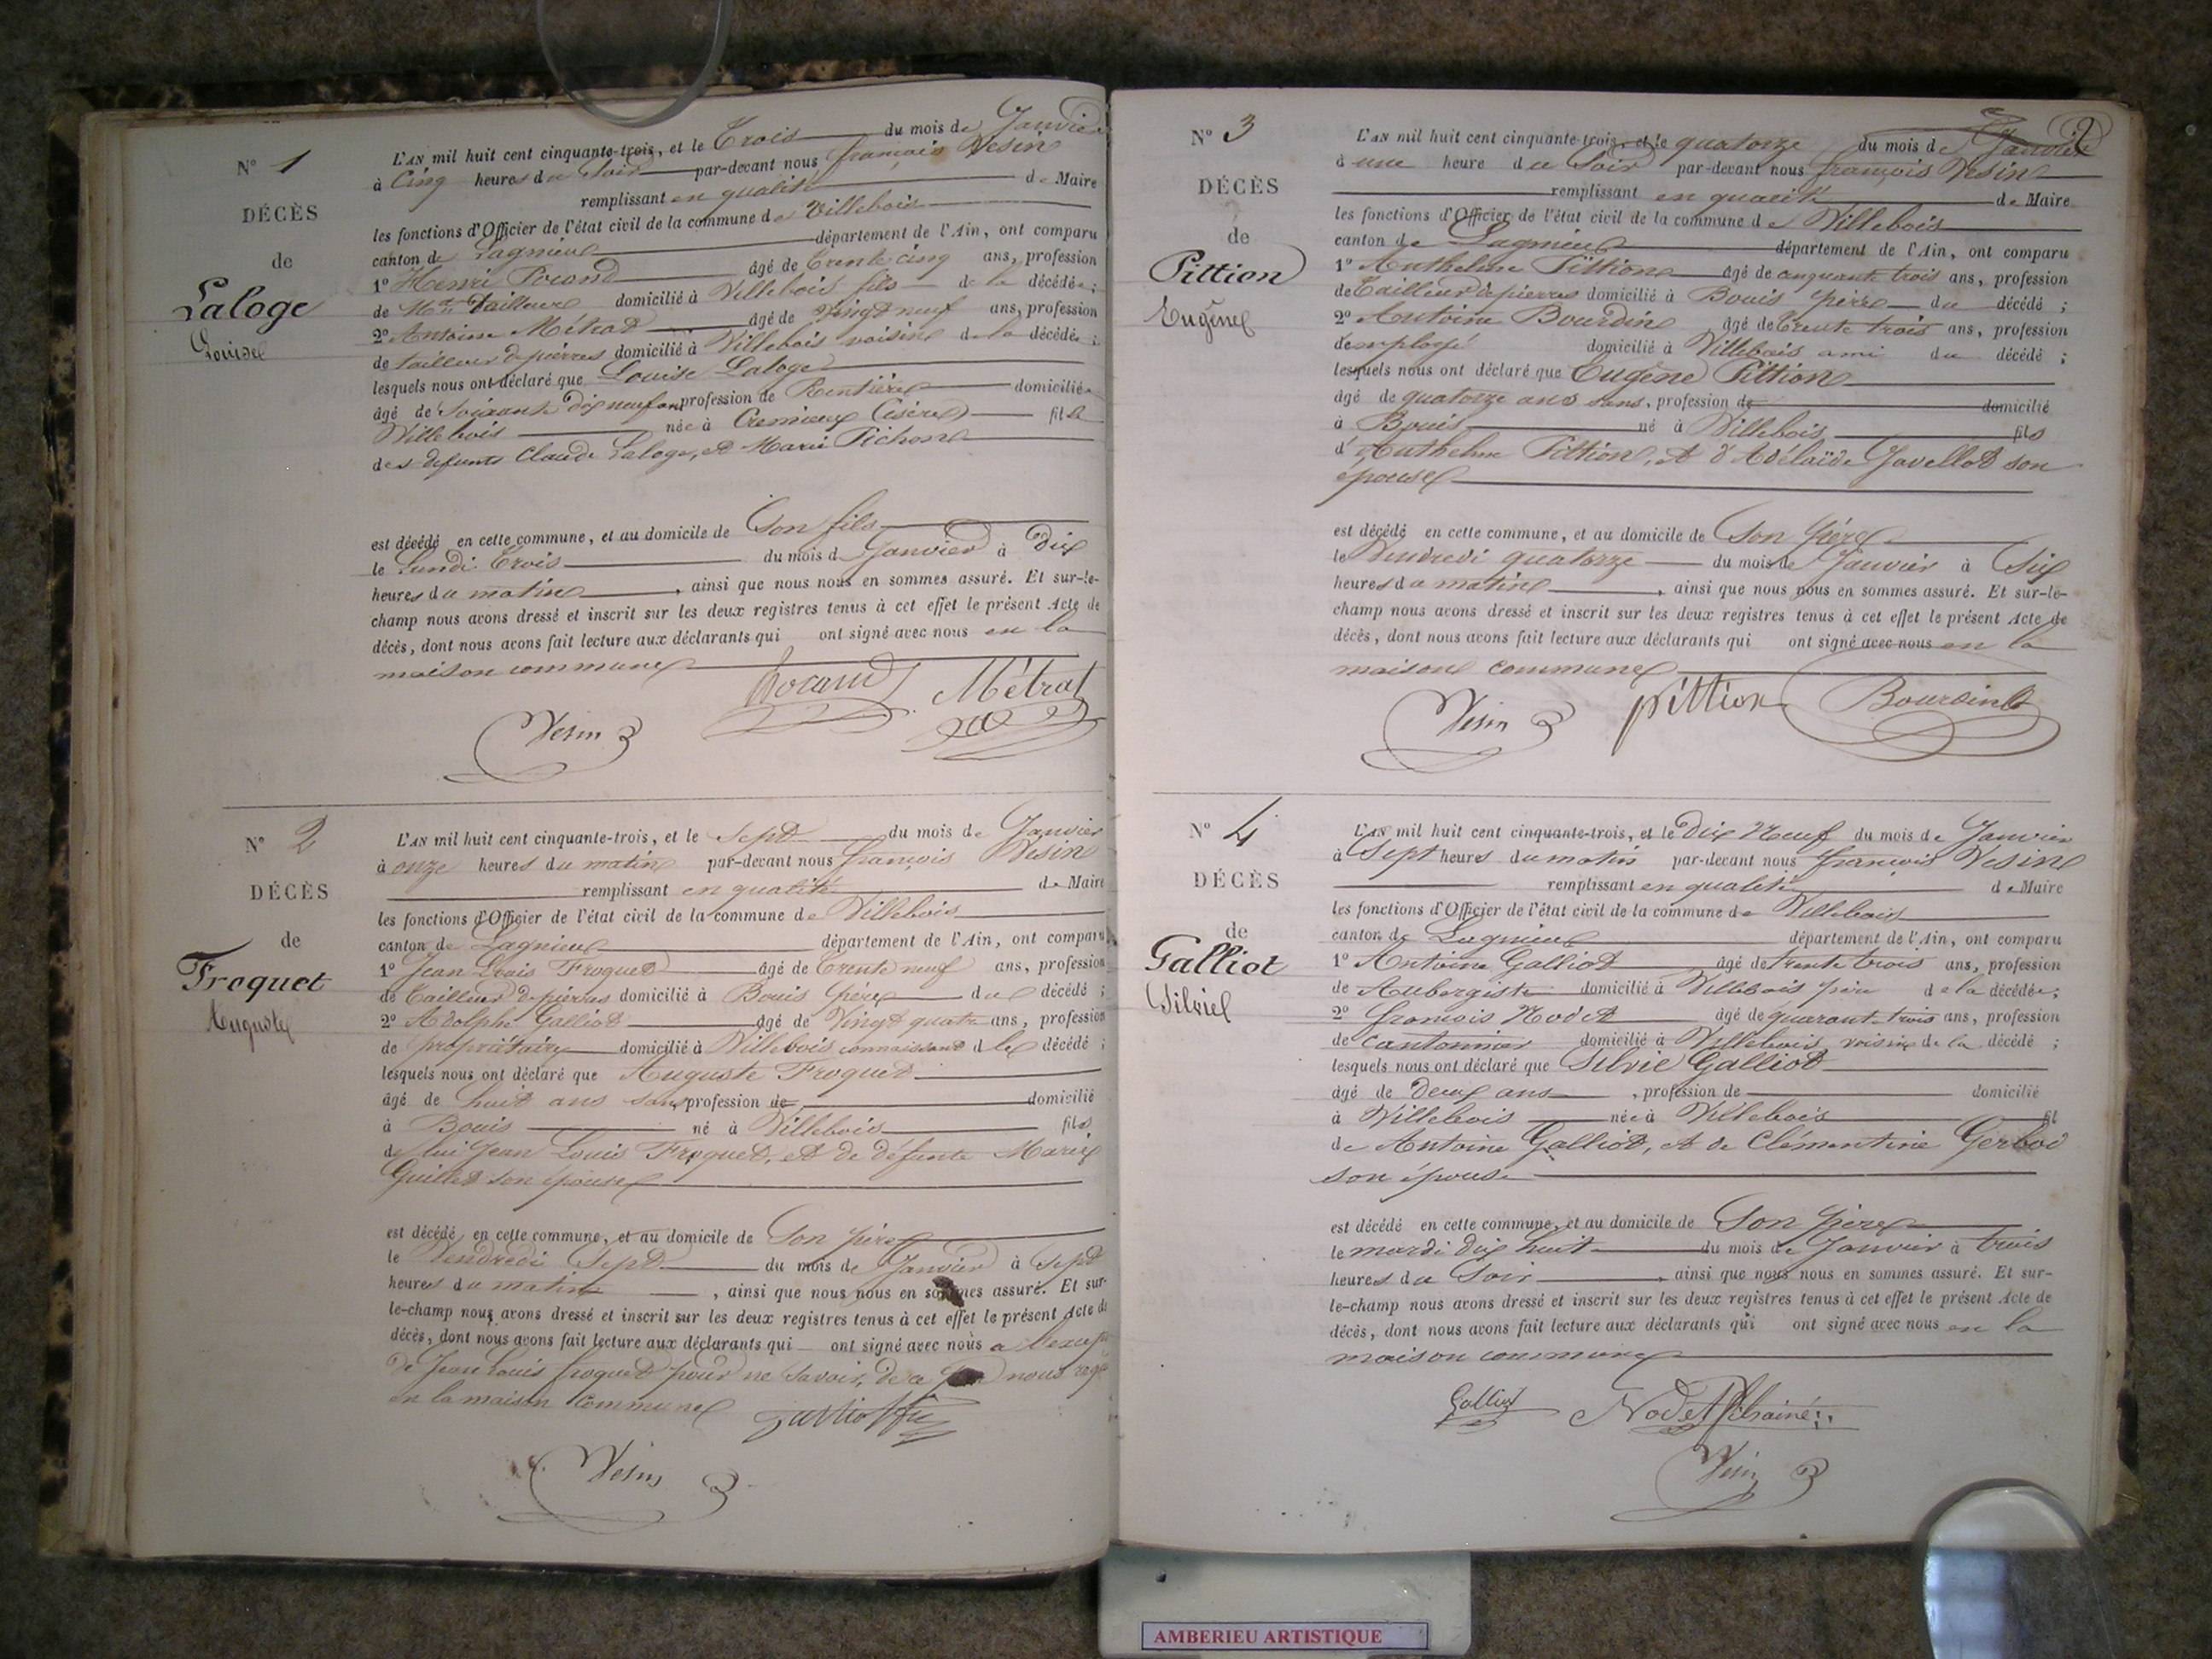 N° 1
DÉCÈS
de
Laloge
Louise
L'AN mil huit cent cinquante-trois, et le Trois du mois de Janvier
à Cinq heures du Soir par-devant nous françois Vesin
remplissant en qualité de Maire
les fonctions d'Officier de l'état civil de la commune de Villebois
canton de Lagnieu département de l'Ain, ont comparu
1° Henri âgé de trente cinq ans, profession
de tailleur domicilié à Villebois fils de la décédée ;
2° Antoine Métrat âgé de Vingt neuf ans, profession
de tailleur de pierres domicilié à Villebois voisin de la décédée ;
lesquels nous ont déclaré que Louise Laloge
âgé de Soixante dix neuf ans profession de Rentière domiciliée
Villebois née à Cremieux (isère) fille
des defunts Claude Laloge, et Marie Pichon
est décédé en cette commune, et au domicile de Son fils
le Lundi Trois du mois de Janvier à Dix
heures du matin, ainsi que nous nous en sommes assuré. Et sur-le-
champ nous avons dressé et inscrit sur les deux registres tenus à cet effet le présent Acte de
décès, dont nous avons fait lecture aux déclarants qui ont signé avec nous en la
maison commune
Métrat
Vesin
N° 2
DÉCÈS
de
Froquet
Auguste
L'AN mil huit cent cinquante-trois, et le Sept du mois de Janvier
à onze heures du matin par-devant nous françois Vesin
remplissant en qualité de Maire
les fonctions d'Officier de l'état civil de la commune de Villebois
canton de Lagnieu département de l'Ain, ont comparu
1° Jean Louis Froquet âgé de Trente neuf ans, profession
de Tailleur de pierres domicilié à Bouis père du décédé ;
2° Adolphe Galliot âgé de Vingt quatre ans, profession
de propriétaire domicilié à Villebois connaissant d le décédé ;
lesquels nous ont déclaré que Auguste Froquet
âgé de huit ans sans profession de domicilié
à Bouis né à Villebois fils
de lui Jean Louis Froquet, et de défunte Marie
Guillet son épouse
est décédé en cette commune, et au domicile de Son père
le Vendredi Sept du mois de Janvier à Sept
heures du matin, ainsi que nous nous en sommes assuré. Et sur-
le-champ nous avons dressé et inscrit sur les deux registres tenus à cet effet le présent Acte de
décès, dont nous avons fait lecture aux déclarants qui ont signé avec nous a
de Jean Louis froquet pour ne savoir, de ce nous
en la maison commune
Vesin
2
N° 3
DÉCÈS
de
Pittion
Eugène
L'AN mil huit cent cinquante-trois, et le quatorze du mois de Janvier
à une heure du Soir par-devant nous françois Vesin
remplissant en qualité de Maire
les fonctions d'Officier de l'état civil de la commune de Villebois
canton de Lagnieu département de l'Ain, ont comparu
1° Anthelme Pittion âgé de cinquante trois ans, profession
de Tailleur de pierres domicilié à Bouis père du décédé ;
2° Antoine Bourdin âgé de Trente trois ans, profession
d'employé domicilié à Villebois ami du décédé ;
lesquels nous ont déclaré que Eugène Pittion
âgé de quatorze ans sans, profession de domicilié
à Bouis né à Villebois fils
d'Anthelme Pittion, et d'Adélaïde Javellot son
épouse
est décédé en cette commune, et au domicile de Son Père
le Vendredi quatorze du mois de Janvier à Six
heures du matin, ainsi que nous nous en sommes assuré. Et sur-le-
champ nous avons dressé et inscrit sur les deux registres tenus à cet effet le présent Acte de
décès, dont nous avons fait lecture aux déclarants qui ont signé avec nous en la
maison commune
Vesin pittion Bourdin
N° 4
DÉCÈS
de
Galliot
Silvie
L'AN mil huit cent cinquante-trois, et le Dix Neuf du mois de Janvier
à Sept heures du matin par-devant nous françois Vesin
remplissant en qualité de Maire
les fonctions d'Officier de l'état civil de la commune de Villebois
canton de Lagnieu département de l'Ain, ont comparu
1° Antoine Galliot âgé de trente trois ans, profession
de Aubergiste domicilié à Villebois père de la décédée ;
2° françois Nodet âgé de quarant-trois ans, profession
de cantonnier domicilié à Villebois voisin de la décédé ;
lesquels nous ont déclaré que Silvie Galliot
âgé de Deux ans, profession de domicilié
à Villebois née à Villebois fil
de Antoine Galliot, et de Clémentine Gerbod
son épouse
est décédé en cette commune, et au domicile de Son Père
le mardi dix huit du mois de Janvier à trois
heures du Soir, ainsi que nous nous en sommes assuré. Et sur-
le-champ nous avons dressé et inscrit sur les deux registres tenus à cet effet le présent Acte de
décès, dont nous avons fait lecture aux déclarants qui ont signé avec nous en la
maison commune
Galliot Nodet
Vesin
AMBERIEU ARTISTIQUE